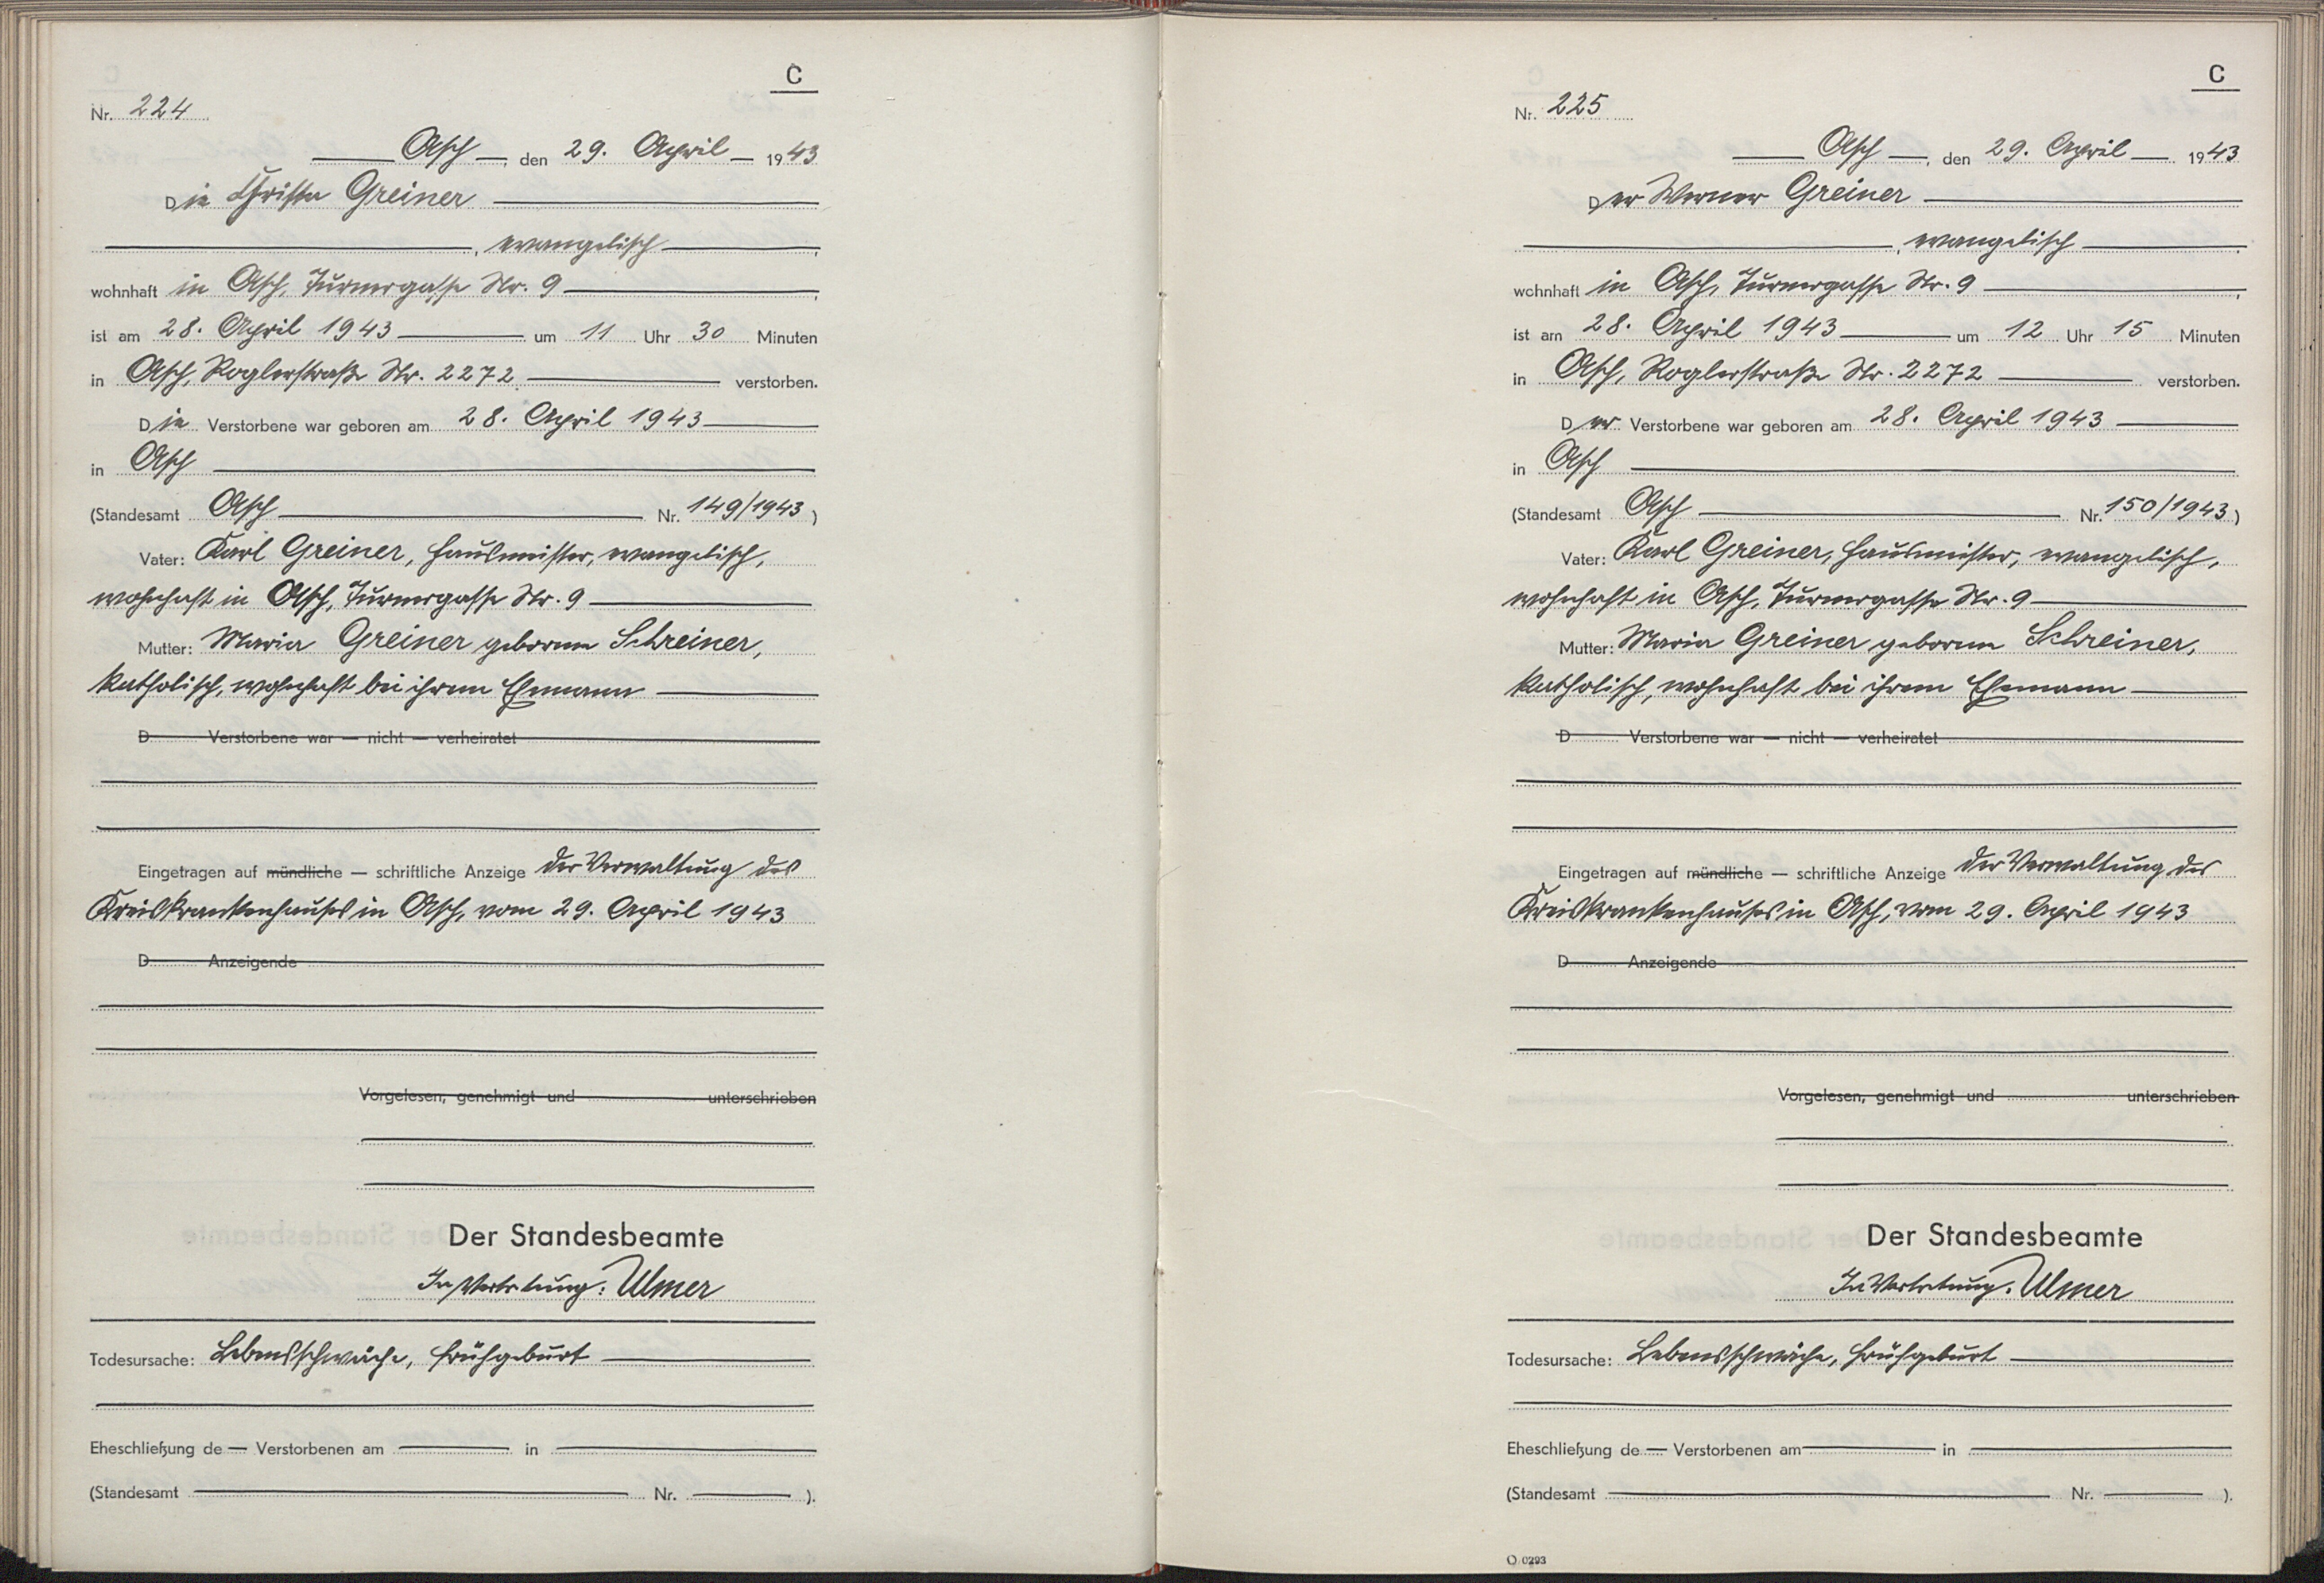 C
Nr. 224
Asch, den 29. April 1943
Die Christa Greiner
, evangelisch,
wohnhaft in Asch, Turnergasse Nr. 9,
ist am 28. April 1943 um 11 Uhr 30 Minuten
in Asch, Roglerstraße Nr. 2272 verstorben.
Die Verstorbene war geboren am 28. April 1943
in Asch
(Standesamt Asch Nr. 149/1943)
Vater: Karl Greiner, Hausmeister, evangelisch,
wohnhaft in Asch, Turnergasse Nr. 9
Mutter: Maria Greiner geborene Schreiner,
katholisch, wohnhaft bei ihrem Ehemann
D Verstorbene war — nicht — verheiratet
Eingetragen auf mündliche — schriftliche Anzeige der Verwaltung des
Kreiskrankenhauses in Asch, vom 29. April 1943
D Anzeigende
Vorgelesen, genehmigt und unterschrieben
Der Standesbeamte
In Vertretung: Ulmer
Todesursache: Lebensschwäche, Frühgeburt
Eheschließung de — Verstorbenen am — in —
(Standesamt — Nr. — ).
C
Nr. 225
Asch, den 29. April 1943
Der Werner Greiner
, evangelisch,
wohnhaft in Asch, Turnergasse Nr. 9,
ist am 28. April 1943 um 12 Uhr 15 Minuten
in Asch, Roglerstraße Nr. 2272 verstorben.
Der Verstorbene war geboren am 28. April 1943
in Asch
(Standesamt Asch Nr. 150/1943)
Vater: Karl Greiner, Hausmeister, evangelisch,
wohnhaft in Asch, Turnergasse Nr. 9
Mutter: Maria Greiner geborene Schreiner,
katholisch, wohnhaft bei ihrem Ehemann
D Verstorbene war — nicht — verheiratet
Eingetragen auf mündliche — schriftliche Anzeige der Verwaltung des
Kreiskrankenhauses in Asch, vom 29. April 1943
D Anzeigende
Vorgelesen, genehmigt und unterschrieben
Der Standesbeamte
In Vertretung: Ulmer
Todesursache: Lebensschwäche, Frühgeburt
Eheschließung de — Verstorbenen am — in —
(Standesamt — Nr. — ).
O 0293